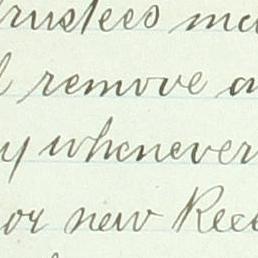 trustees ma
l remove a
y whenever
or new Rec